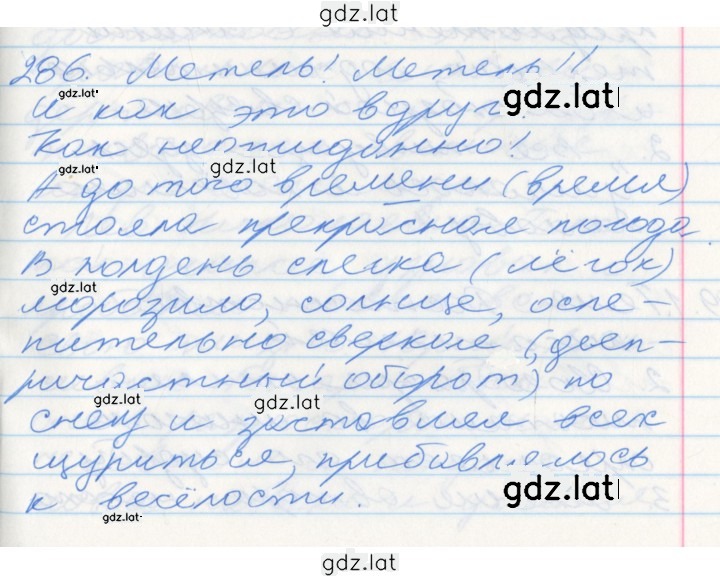 gdz.lat
286. Метель! Метель!!
gdz.lat
gdz.lat
И как это вдруг.
Как неожиданно!
gdz.lat
gdz.lat
А до того времени (время)
стояла прекрасная погода.
В полдень слегка (лёгок)
gdz.lat
морозило, солнце, осле-
пительно сверкая (дееп-
ричастный оборот) по
gdz.lat
gdz.lat
снегу и заставляя всех
щуриться, прибавлялось
к весёлости.
gdz.lat
gdz.lat
gdz.lat